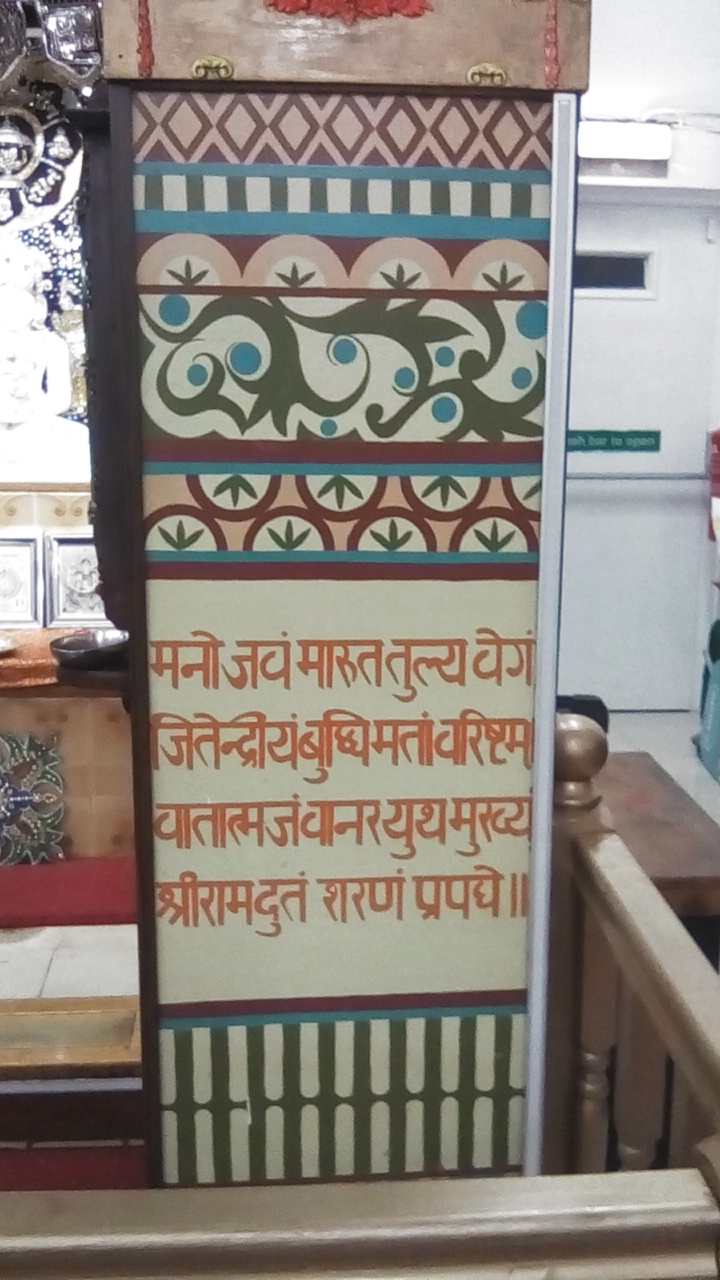 मनोजवं मारुत तुल्य वेगं
जितेन्द्रीयं बुध्धिमतां वरिष्टम्
वातात्मजं वानरयुथ मुख्यं
श्रीरामदुतं शरणं प्रपद्ये॥
bar to open